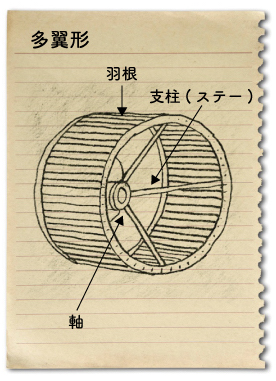 多翼形
羽根
支柱(ステー)
軸